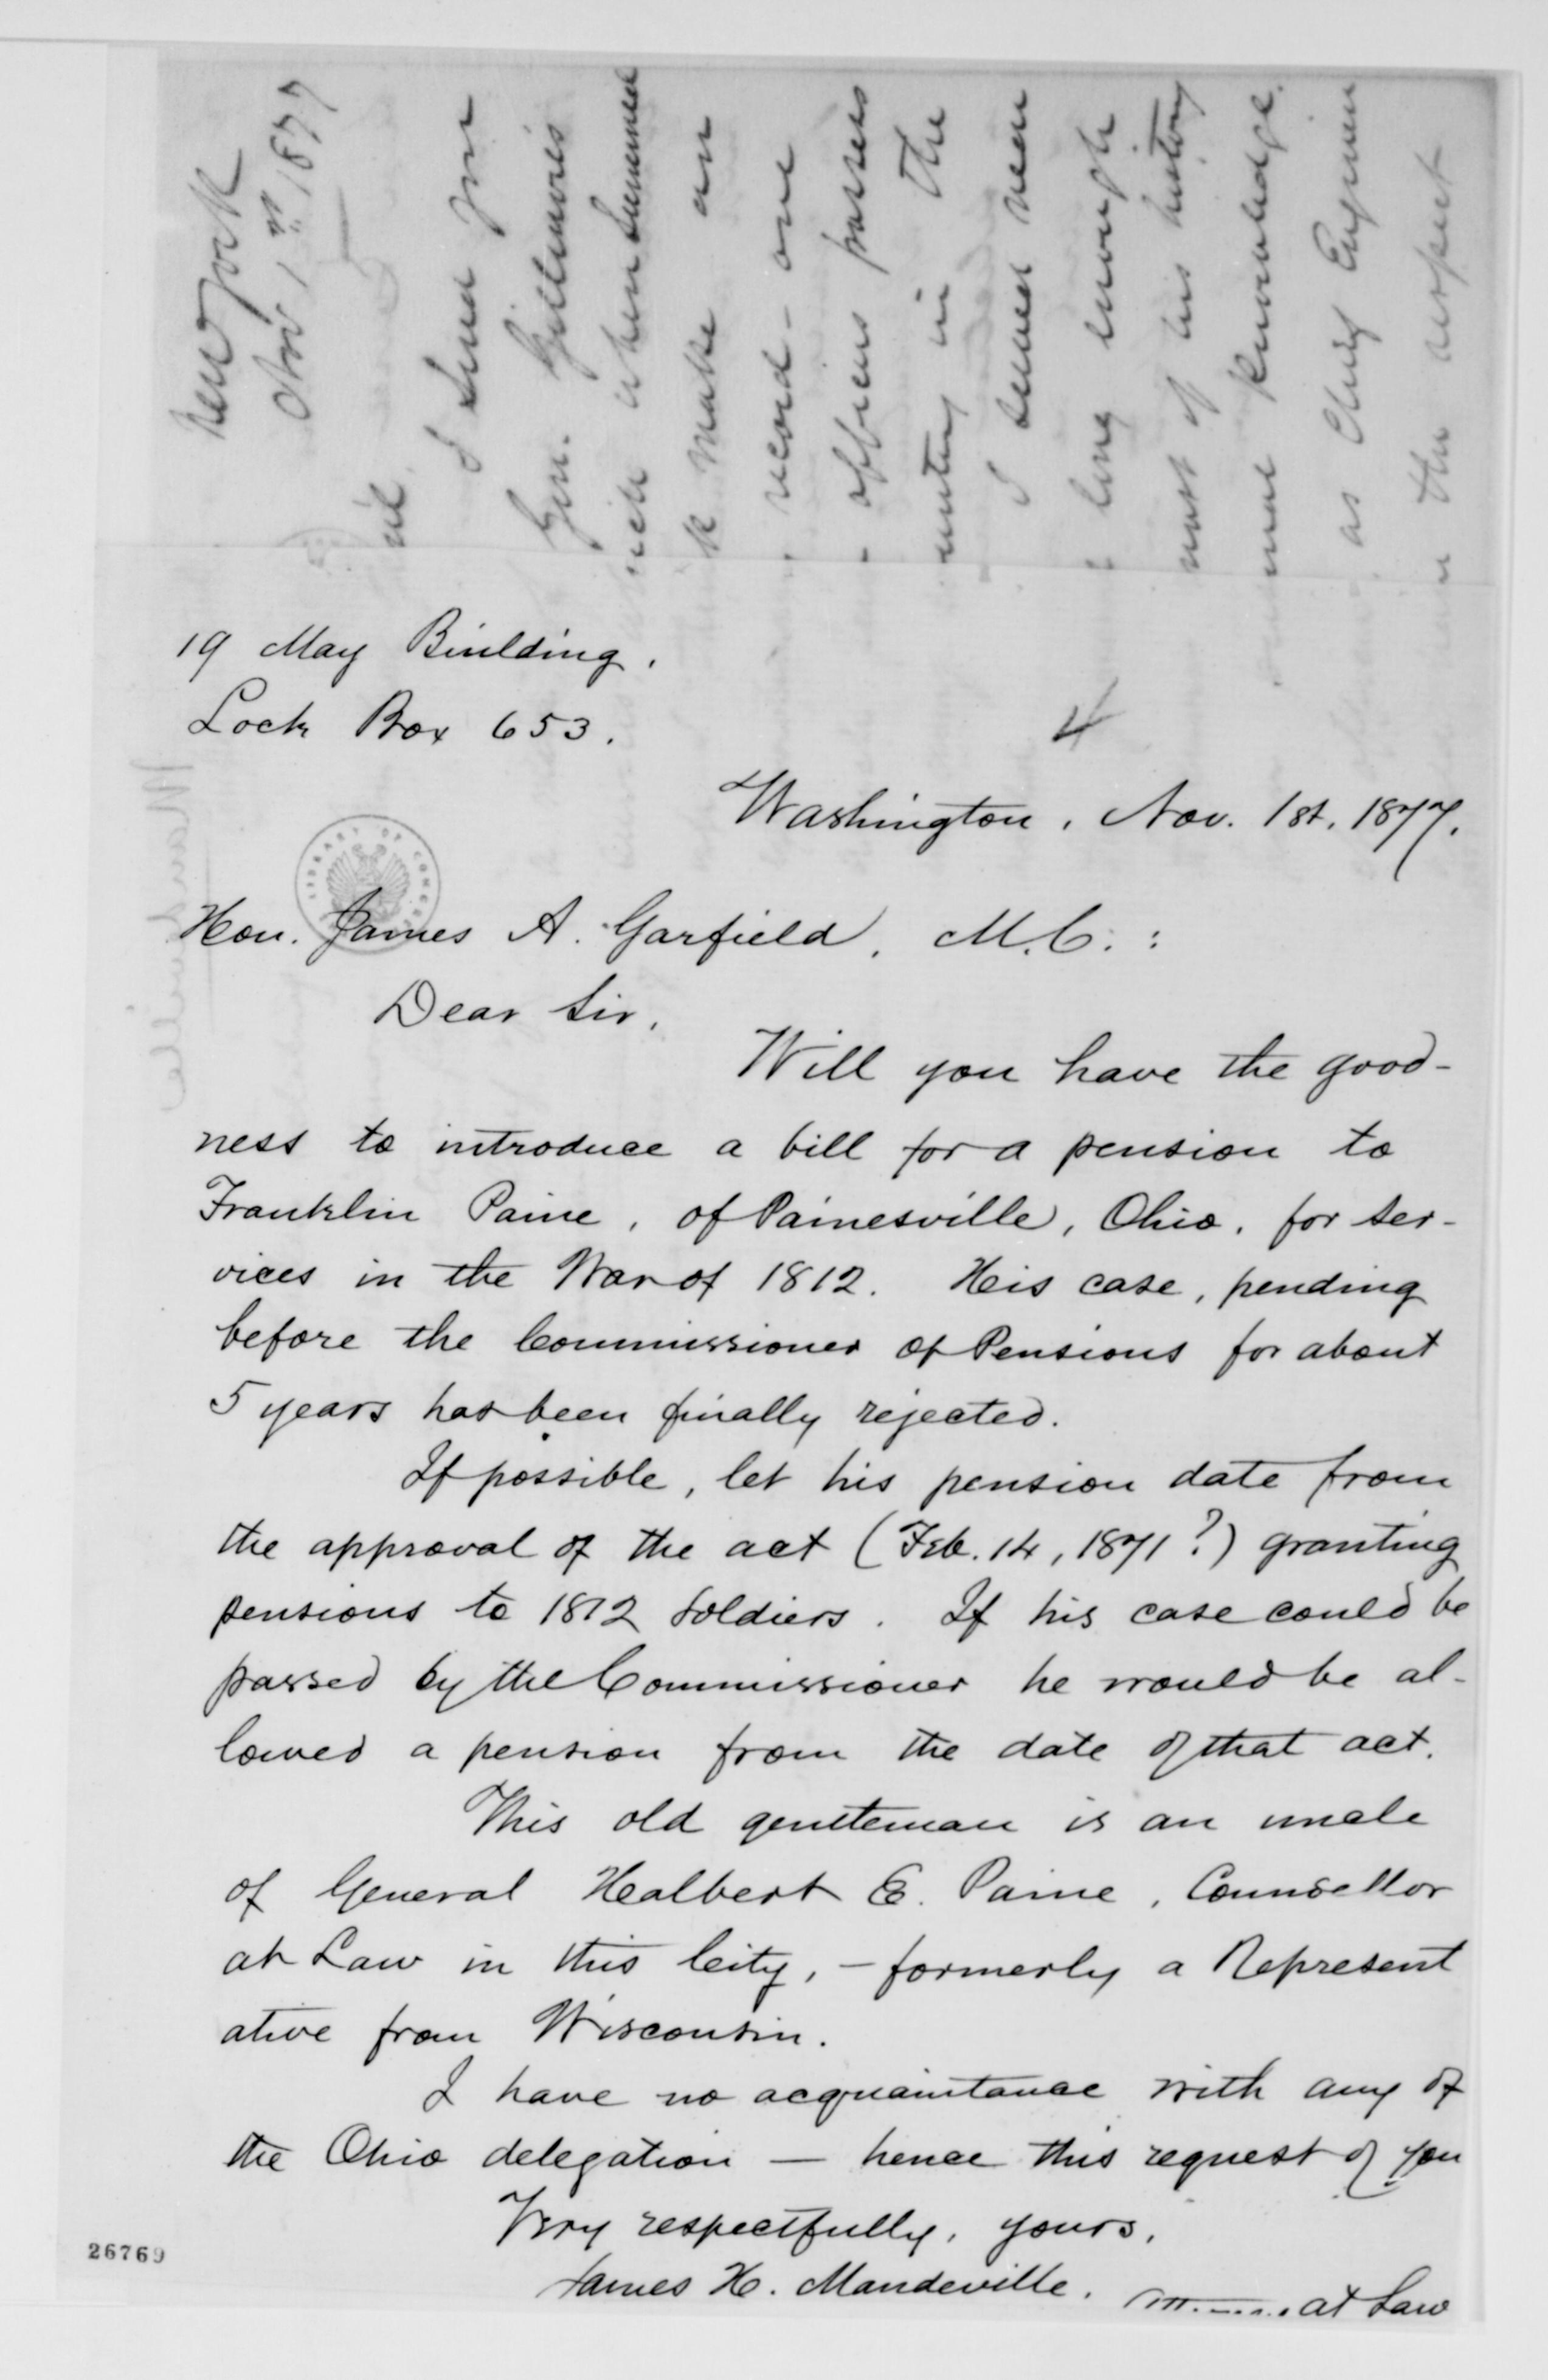 New York
Nov 1st 1877
I send you
Gen. Gillmore's
when summed
make an
record - one
officers passes
in the
I
long enough
most of his history
knowledge.
as Chief Engineer
in the respect
19 May Building.
Lock Box 653.
4
Washington, Nov. 1st, 1877.
LIBRARY OF CONGRESS
Hon. James A. Garfield, M.C.:
Dear Sir,
Will you have the good-
ness to introduce a bill for a pension to
Franklin Paine, of Painesville, Ohio, for ser-
vices in the War of 1812. His case, pending
before the Commissioner of Pensions for about
5 years has been finally rejected.
If possible, let his pension date from
the approval of the act (Feb. 14, 1871?) granting
pensions to 1812 soldiers. If his case could be
passed by the Commissioner he would be al-
lowed a pension from the date of that act.
This old gentleman is an uncle
of General Halbert E. Paine, Counsellor
at Law in this City, - formerly a Represent
ative from Wisconsin.
I have no acquaintance with any of
the Ohio delegation — hence this request of you
Very respectfully, yours,
James H. Mandeville.
at Law
26769